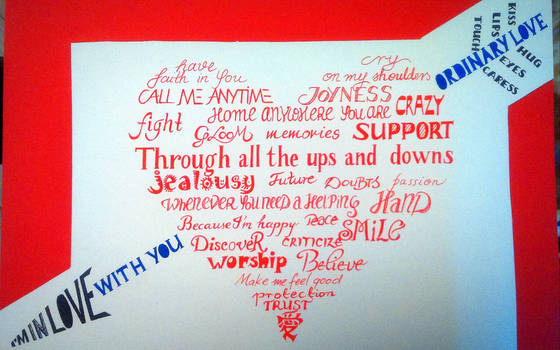 KISS
HUG
LIPS
EYES
TOUCH
CARESS
ORDINARY LOVE
have
faith in You
cry
on my shoulders
CALL ME ANYTIME
JOYNESS
Home anywhere You are
CRAZY
fight
GLOOM
memories
SUPPORT
Through all the ups and downs
jealousy
Future
Doubts
passion
whenever you need a Helping
HanD
Because I'm happy
peace
SMiLe
DiscoveR
CRITICIZE
worship
Believe
Make me feel good
protection
TRUST
愛
I'M IN LOVE WITH YOU